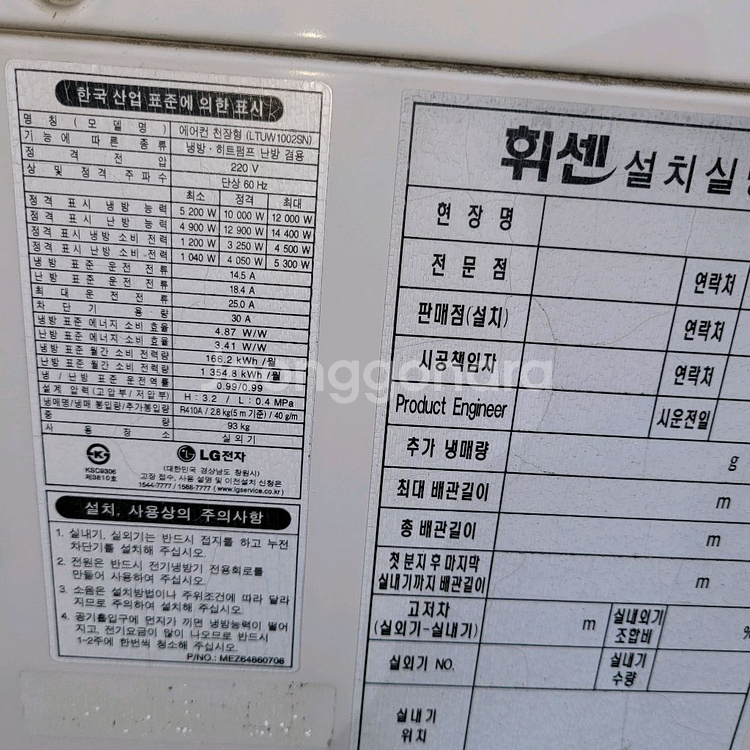 한국 산업 표준에 의한 표시
명 칭 ( 모 델 명 ) 에어컨 천장형 (LTUW1002SN)
기 능 에 따 른 종 류 냉방 · 히트펌프 난방 겸용
정 격 전 압 220 V
상 및 정 격 주 파 수 단상 60 Hz
최소 정격 최대
정격 표시 냉방 능력 5 200 W 10 000 W 12 000 W
정격 표시 난방 능력 4 900 W 12 900 W 14 400 W
정격 표시 냉방 소비 전력 1 200 W 3 250 W 4 500 W
정격 표시 난방 소비 전력 1 040 W 4 050 W 5 300 W
냉 방 표 준 운 전 전 류 14.5 A
난 방 표 준 운 전 전 류 18.4 A
최 대 운 전 전 류 25.0 A
차 단 기 용 량 30 A
냉방 표준 에너지 소비 효율 4.87 W/W
난방 표준 에너지 소비 효율 3.41 W/W
냉방 표준 월간 소비 전력량 166.2 kWh /월
난방 표준 월간 소비 전력량 1 354.8 kWh /월
냉 / 난방 표준 운전역률 0.99/0.99
설계 압력 (고압부/ 저압부) H : 3.2 / L : 0.4 MPa
냉매명/냉매 봉입량/추가봉입량 R410A / 2.8 kg(5 m 기준) / 40 g/m
중 량 93 kg
사 용 장 소 실 외 기
KSC9306
제3810호
LG전자
(대한민국 경상남도 창원시)
고장 접수, 사용 설명 및 이전설치 신청은
1544-7777 / 1588-7777 ( www.lgservice.co.kr)
설치, 사용상의 주의사항
1. 실내기, 실외기는 반드시 접지를 하고 누전
차단기를 설치해 주십시오.
2. 전원은 반드시 전기냉방기 전용회로를
만들어 사용하여 주십시오.
3. 소음은 설치방법이나 주위조건에 따라 달라
지므로 주의하여 설치해 주십시오.
4. 공기흡입구에 먼지가 끼면 냉방능력이 떨어
지고, 전기요금이 많이 나오므로 반드시
1-2주에 한번씩 청소해 주십시오.
P/NO.: MEZ64860706
휘센 설치실
현 장 명
전 문 점 연락처
판매점(설치) 연락처
시공책임자 연락처
Product Engineer 시운전일
추가 냉매량 g
최대 배관길이 m
총 배관길이 m
첫 분지 후 마지막
실내기까지 배관길이 m
고저차
(실외기-실내기) m 실내외기
조합비 %
실외기 NO. 실내기
수량
실내기
위치